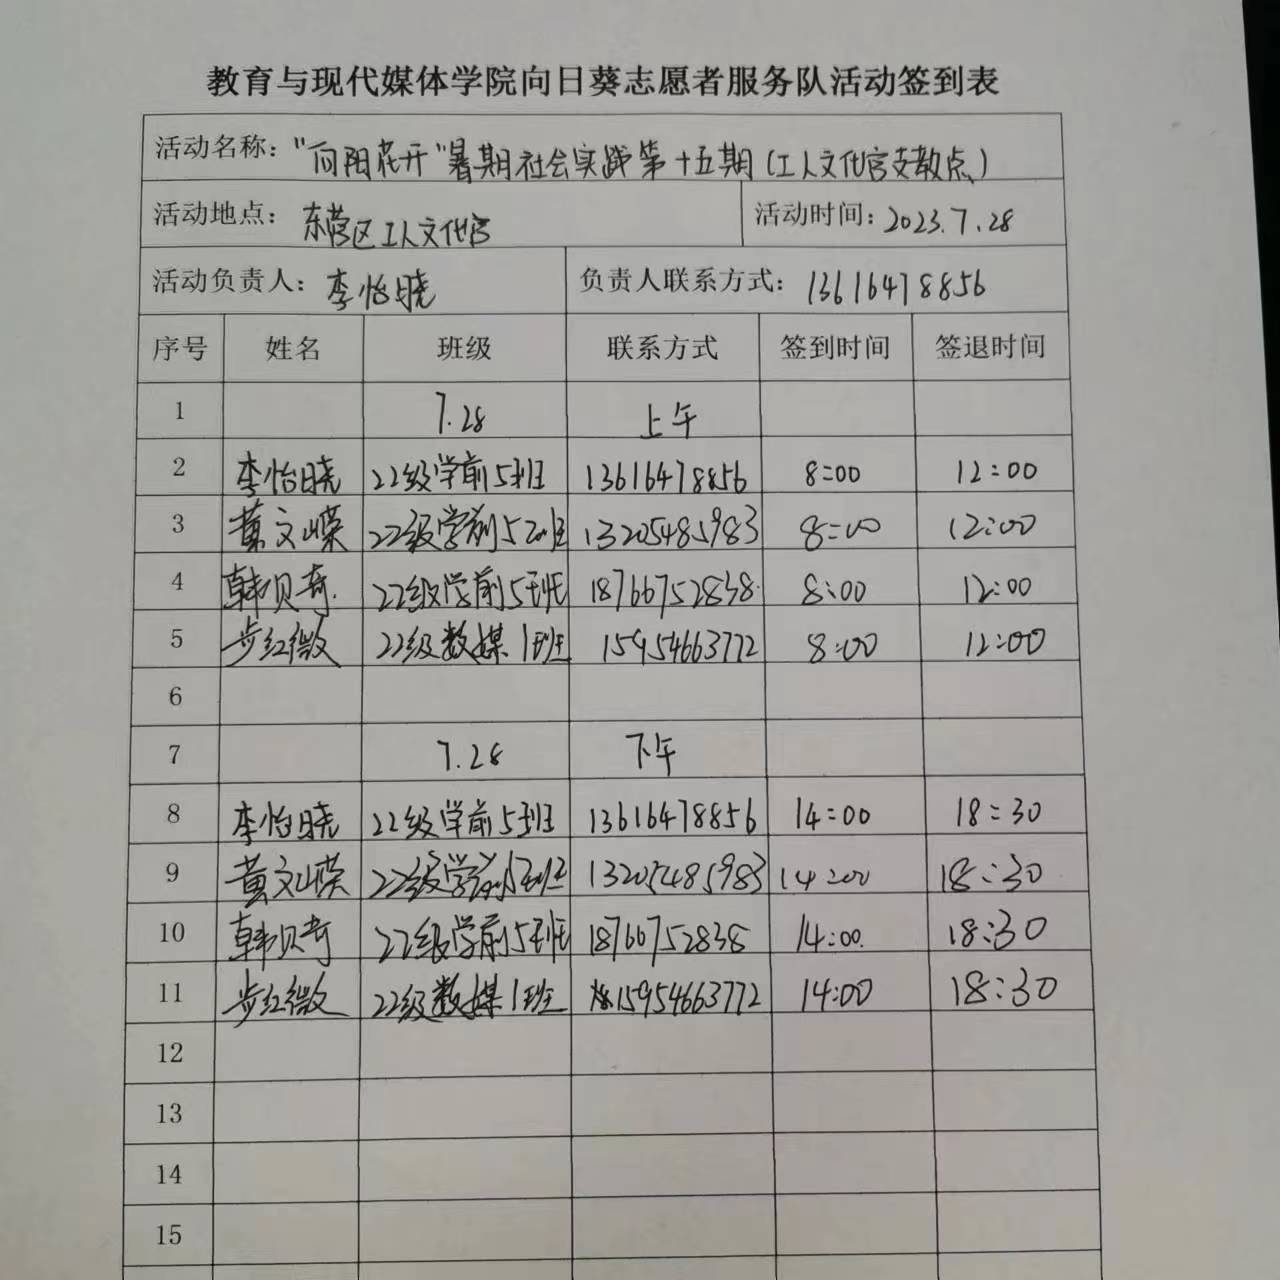 教育与现代媒体学院向日葵志愿者服务队活动签到表
活动名称："向阳花开"暑期社会实践第十五期(工人文化宫支教点)
活动地点：东营区工人文化宫 活动时间：2023.7.28
活动负责人：李怡晓 负责人联系方式：13616478856
序号 姓名 班级 联系方式 签到时间 签退时间
1 7.28 上午
2 李怡晓 22级学前5班 13616478856 8:00 12:00
3 黄文嵘 22级学前5班 13205485983 8:00 12:00
4 韩贝奇 22级学前5班 18766752838 8:00 12:00
5 步红微 22级数媒1班 15954663772 8:00 12:00
6
7 7.28 下午
8 李怡晓 22级学前5班 13616478856 14:00 18:30
9 黄文嵘 22级学前5班 13205485983 14:00 18:30
10 韩贝奇 22级学前5班 18766752838 14:00 18:30
11 步红微 22级数媒1班 15954663772 14:00 18:30
12
13
14
15